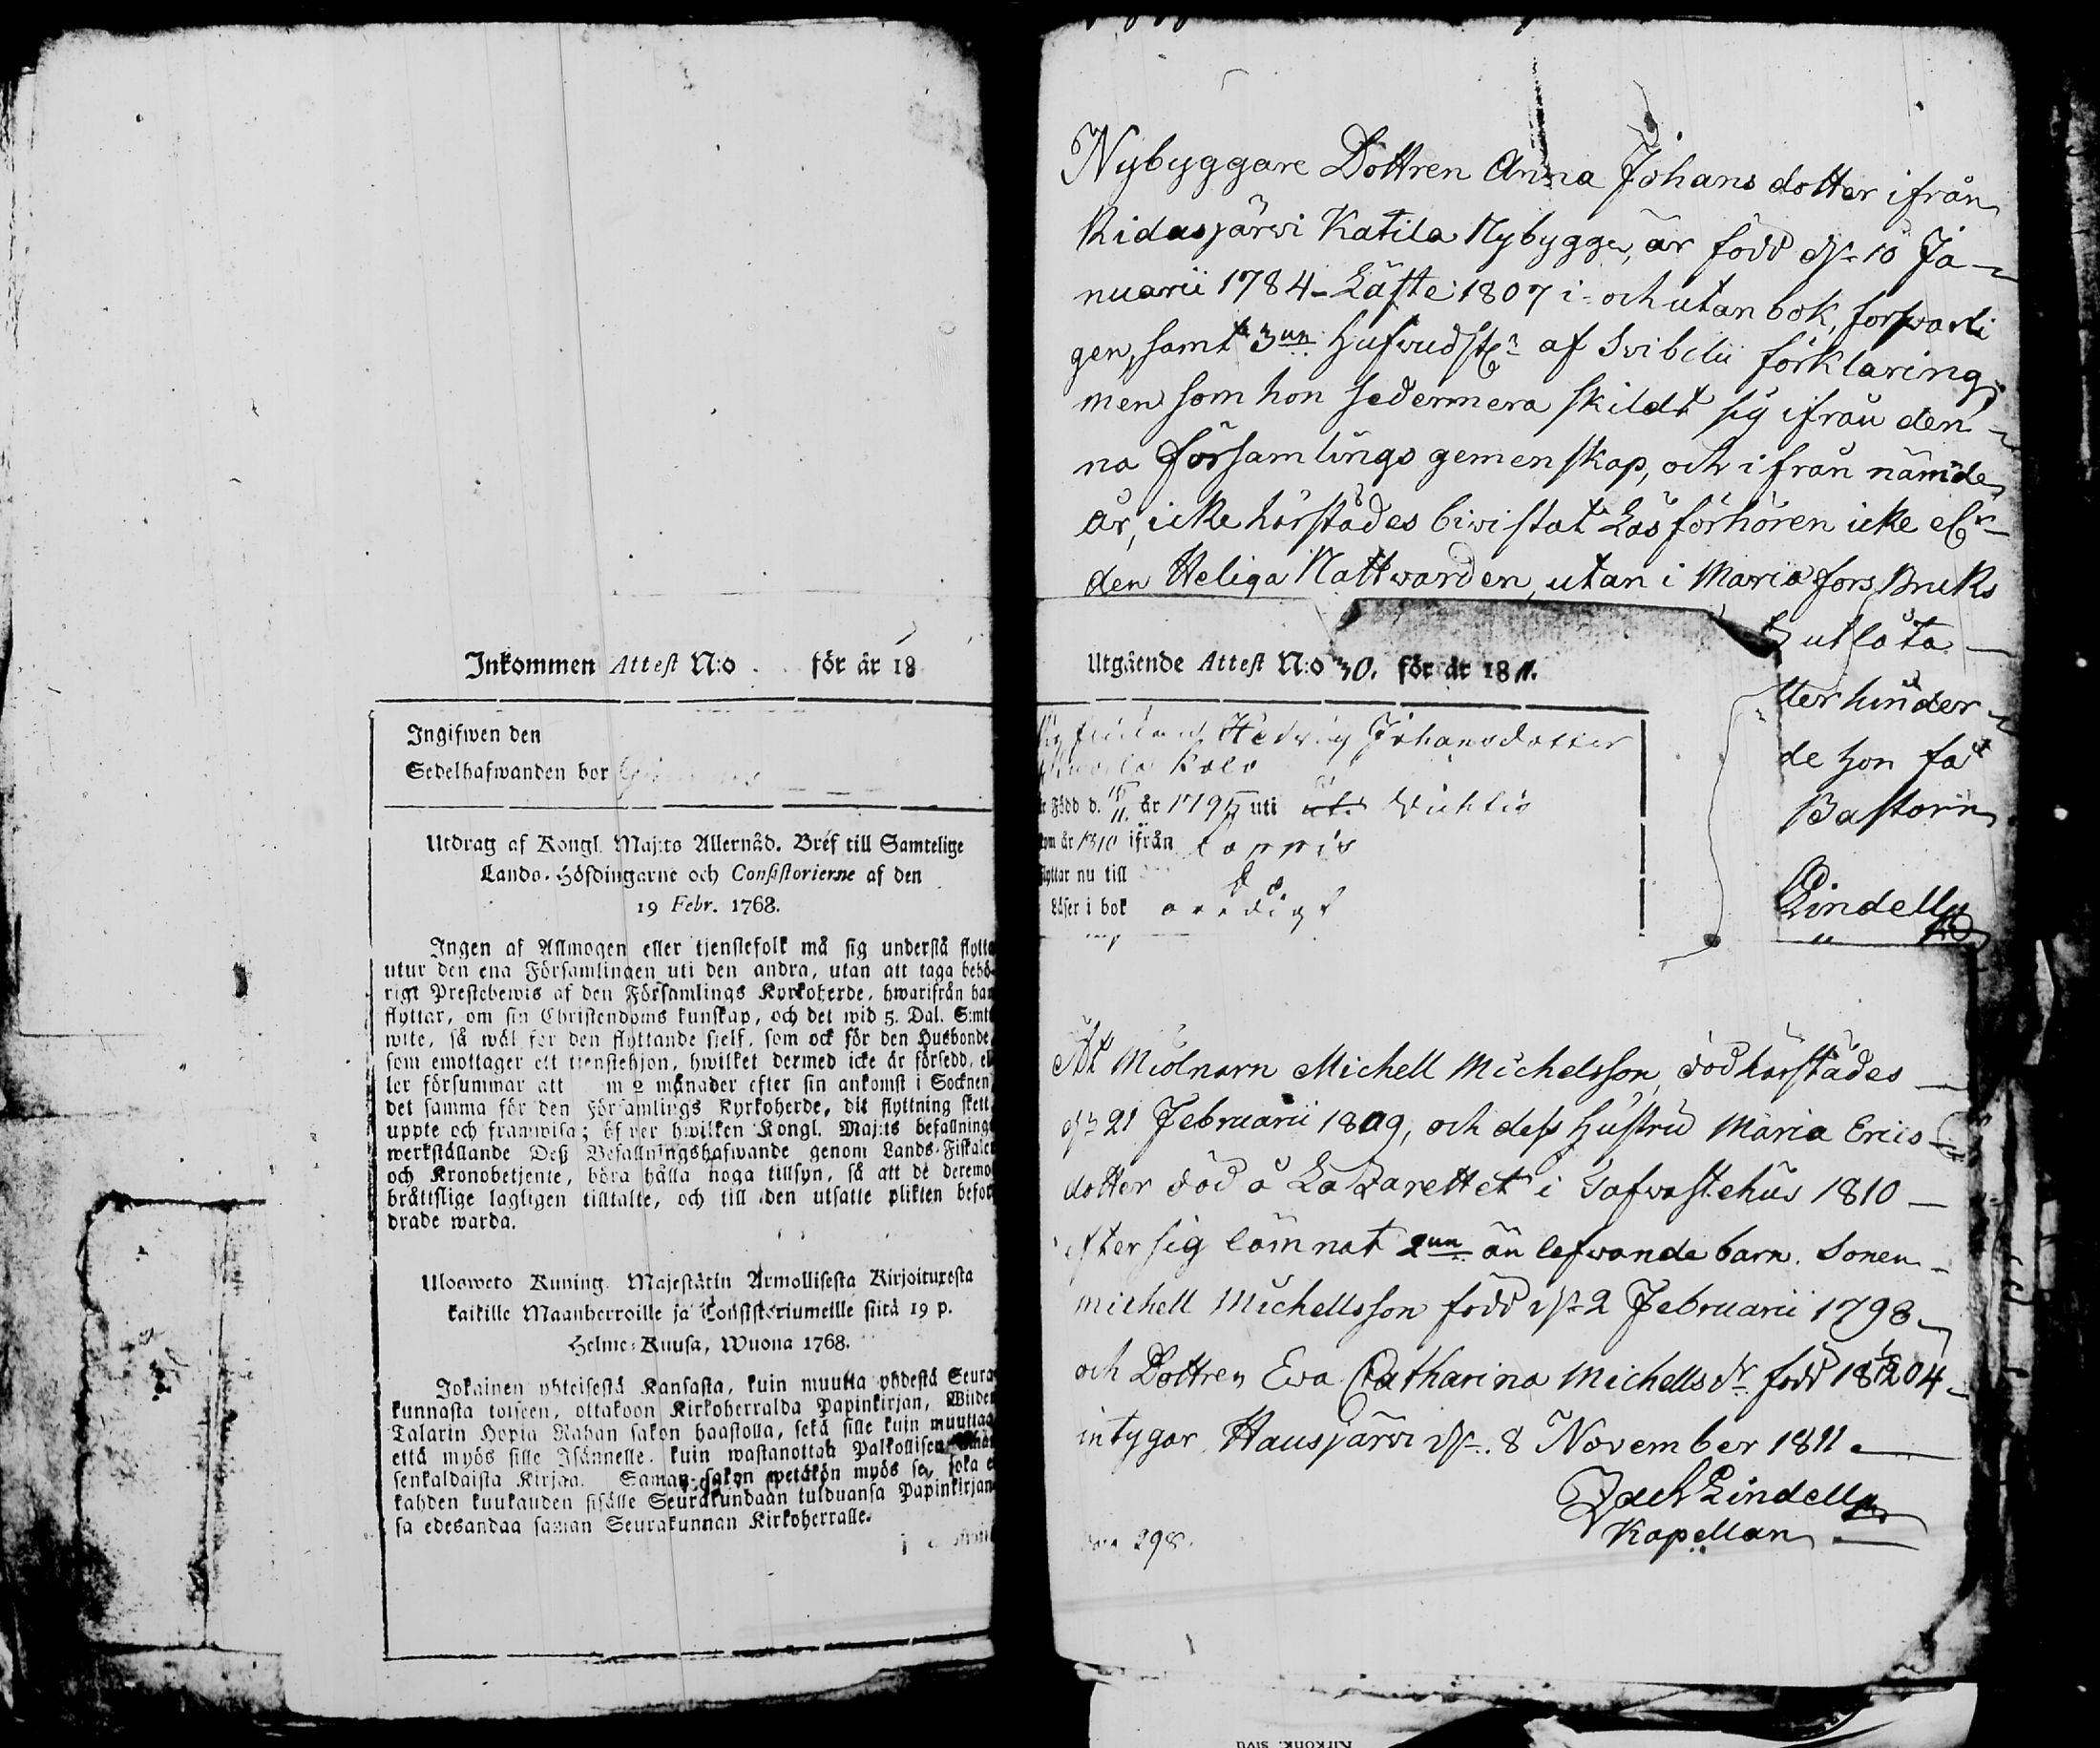 Inkommen Attest N:o . för år 18
Ingifwen den
Sedelhafwanden bor
Utdrag af Kongl. Maj:ts Allernåd. Bref till Samtelige
Lands-Höfdingarne och Consistorierne af den
19 Febr. 1768.
Ingen af Allmogen eller tjenstefolk må sig understå flytta
utur den ena Församlingen uti den andra, utan att taga behö-
rigt Prestebewis af den Församlings Kyrkoherde, hwarifrån han
flyttar, om sin Christendoms kunskap, och det wid 5. Dal. S:mt
wite, så wäl för den flyttande sjelf, som ock för den Husbonde,
som emottager ett tjenstehjon, hwilket dermed icke är försedd, el
ler försummar att m 2 månader efter sin ankomst i Socknen
det samma för den Församlings Kyrkoherde, dit flyttning skett,
uppte och framwisa; öfwer hwilken Kongl. Maj:ts befallning
werkställande Deß Befallningshafwande genom Lands-Fiskaler
och Kronobetjente, böra hålla noga tillsyn, så att de deremo
bråttslige lagligen tilltalte, och till den utsatte plikten befor
drade warda.
Ulosweto Kuning. Majestätin Armollisesta Kirjoituxesta
kaikille Maanherroille ja Consistoriumeille siitä 19 p.
Helme-Kuusa, Wuona 1768.
Jokainen yhteisestä Kansasta, kuin muutta yhdestä Seura
kunnasta toiseen, ottakoon Kirkoherralda Papinkirjan, Wiiden
Talarin Hopia Rahan sakon haastolla, sekä sille kuin muuttaa
että myös sille Isännelle, kuin wastanottaa Palkollisen
senkaldaista Kirjaa. Saman sakon wetäkön myös se, joka e
kahden kuukauden sisälle Seurakundaan tulduansa Papinkirjan
sa edesandaa saman Seurakunnan Kirkoherralle.
Nybyggare Dottren Anna Johans dotter ifrån
Ridasjärwi Katila Nybygge, är född d. 10 Ja-
nuarii 1784 - Läste 1807 i- och utan bok, forswarli
gen, samt 3un Hufwudst af Svibelii förklaring,
men som hon sedermera skildt sig ifrån den-
na församlings gemenskap, och ifrån nämde
år, icke härstädes biwistat Läsförhören icke
den Heliga Nattwarden, utan i Maria fors Bruks
utlåta
tter hinder
de hon ta
Pastorn
Lindell
Utgående Attest N:o 30. för år 1811.
Hedwig Johansdotter
är Född d. 15/11. år 1795 uti Wichtis
kom år 1810 ifrån Loppis
flyttar nu till
Läser i bok
At Miölnarn Michell Michelsson, död härstädes
d. 21 Februarii 1809, och dess Hustru Maria Erics-
dotter död å Lazarettet i Tafwastehus 1810 -
efter sig lämnat 2un än lefwande barn. Sonen
Michell Michellsson född d. 2 Februarii 1798
och Dottren Ewa Catharina Michells dr född 18 1/12 04 -
intygar Hausjärwi d. 8 November 1811.
Zach Lindell
Kapellan
298.
Kirkonk. sivu